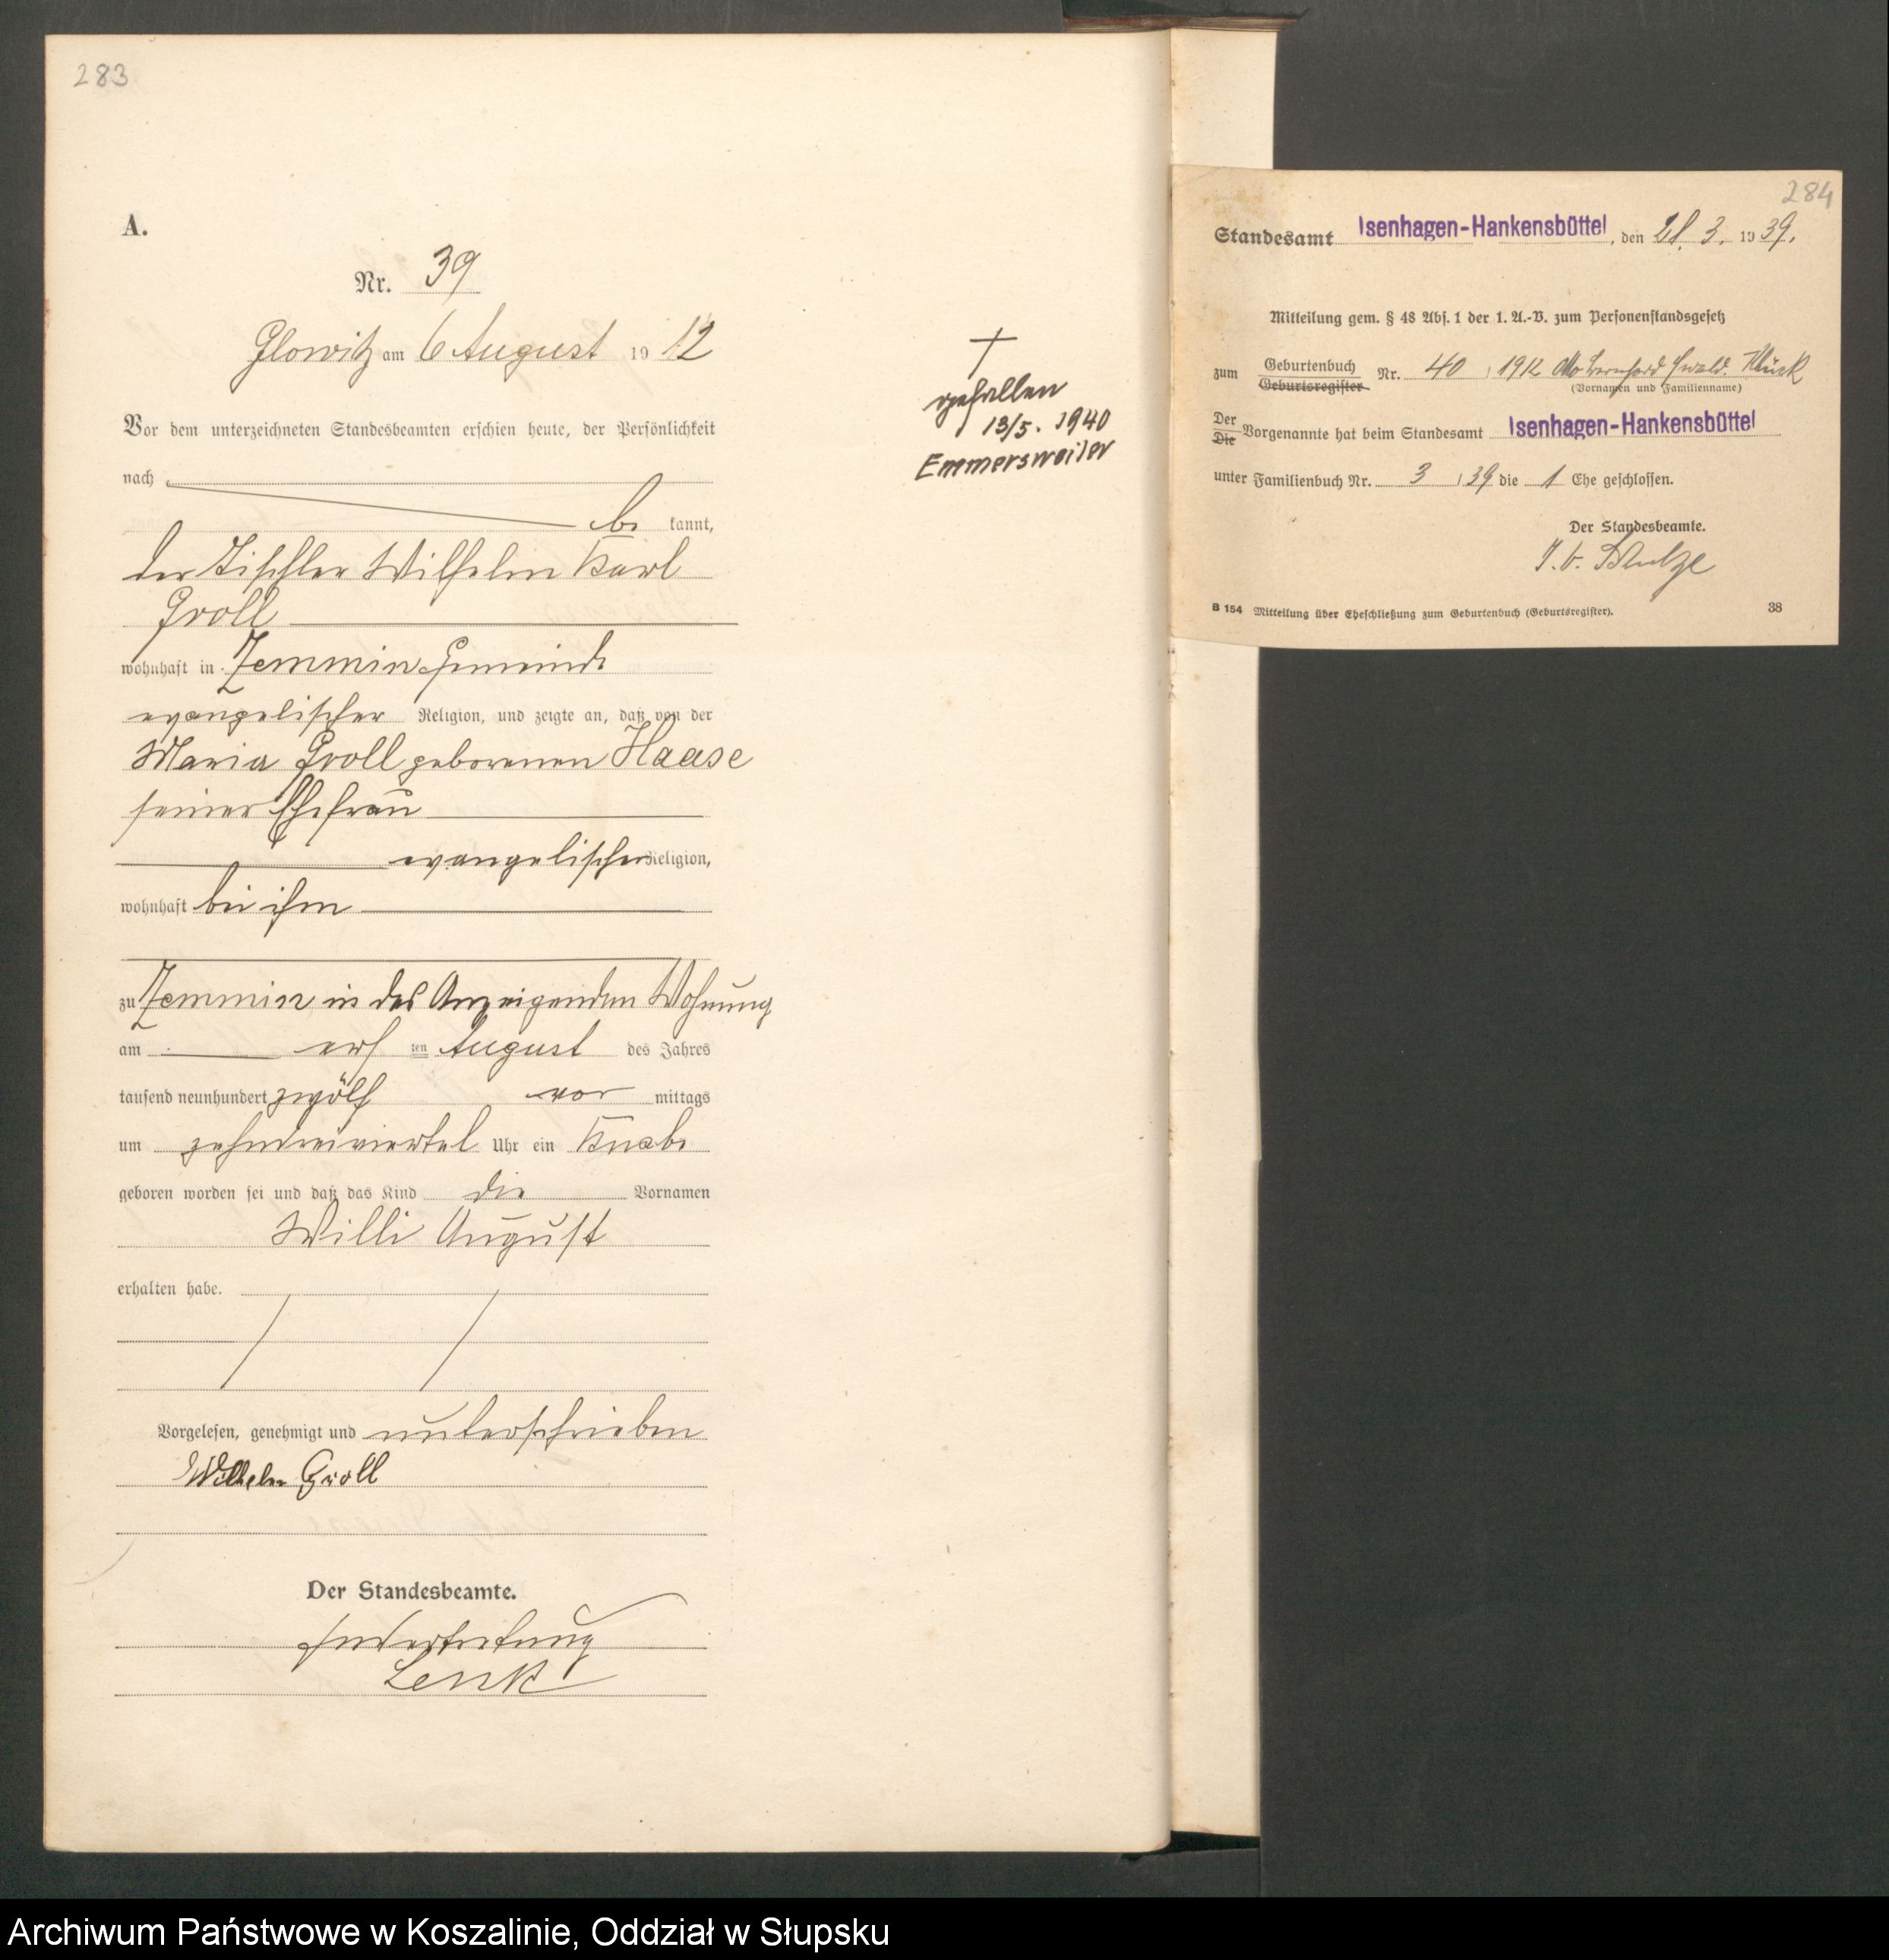 283
A.
Nr. 39
Glowitz am 6 August 1912
Vor dem unterzeichneten Standesbeamten erschien heute, der Persönlichkeit
nach
be kannt,
der Tischler Wilhelm Karl
Groll
wohnhaft in Zemmin Gemeinde
evangelischer Religion, und zeigte an, daß von der
Maria Groll geborenen Haase
seiner Ehefrau
evangelischer Religion,
wohnhaft bei ihm
zu Zemmin in des Anzeigenden Wohnung
am ten August des Jahres
tausend neunhundert zwölf vor mittags
um zehndreiviertel Uhr ein Knabe
geboren worden sei und daß das Kind die Vornamen
Willi August
erhalten habe.
Vorgelesen, genehmigt und unterschrieben
Wilhelm Groll
Der Standesbeamte.
In Vertretung
Lenk
†
gefallen
13/5. 1940
Emmersweiler
284
Standesamt Isenhagen-Hankensbüttel, den 28. 3. 1939.
Mitteilung gem. § 48 Abs. 1 der 1. A.-V. zum Personenstandsgesetz
zum Geburtenbuch Nr. 40 / 1912 Otto Bernhard Ewald Klück
Geburtsregister
(Vornamen und Familienname)
Der
Die Vorgenannte hat beim Standesamt Isenhagen-Hankensbüttel
unter Familienbuch Nr. 3 / 39 die 1 Ehe geschlossen.
Der Standesbeamte.
I. V.
B 154 Mitteilung über Eheschließung zum Geburtenbuch (Geburtsregister). 38
Archiwum Państwowe w Koszalinie, Oddział w Słupsku